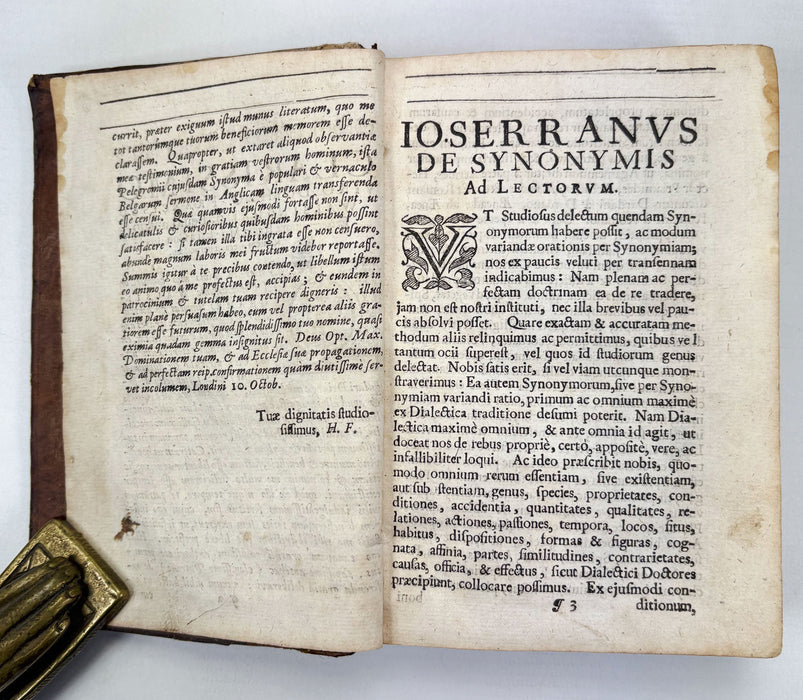 currit, præter exiguum iſtud munus literatum, quo me
tot tantorumque tuorum beneficiorum memorem eſſe de-
claraſſem. Quapropter, ut extaret aliquod obſervantiæ
meæ teſtimonium, in gratiam veſtrorum hominum, iſta
Pelegromii cujuſdam Synonyma è populari & vernaculo
Belgarum ſermone in Anglicam linguam transferenda
eſſe cenſui. Quæ quamvis ejuſmodi fortaſſe non ſint, ut
delicatulis & curioſioribus quibuſdam hominibus poſſint
ſatisfacere: ſi tamen illa tibi ingrata eſſe non cenſuero,
abunde magnum laboris mei fructum videbor reportaſſe.
Summis igitur à te precibus contendo, ut libellum iſtum
eo animo quo à me profectus eſt, accipias; & eundem in
patrocinium & tutelam tuam recipere digneris: illud
enim planè perſuaſum habeo, eum vel propterea aliis gra-
tiorem eſſe futurum, quod ſplendidiſſimo tuo nomine, quaſi
eximia quadam gemma inſignitus ſit. Deus Opt. Max.
Dominationem tuam, & ad Eccleſiæ ſuæ propagationem,
& ad perfectam reip. confirmationem quam diutiſſimè ſer-
vet incolumem, Londini 10. Octob.
Tuæ dignitatis ſtudio-
ſiſſimus, H. F.
IO. SERRANVS
DE SYNONYMIS
Ad LECTORVM.
VT Studioſus delectum quendam Syn-
onymorum habere poſſit, ac modum
variandæ orationis per Synonymiam;
nos ex paucis veluti per tranſennam
indicabimus: Nam plenam ac per-
fectam doctrinam ea de re tradere,
jam non eſt noſtri inſtituti, nec illa brevibus vel pau-
cis abſolvi poſſet. Quare exactam & accuratam me-
thodum aliis relinquimus ac permittimus, quibus vel
tantum ocii ſupereſt, vel quos id ſtudiorum genus
delectat. Nobis ſatis erit, ſi vel viam utcunque mon-
ſtraverimus: Ea autem Synonymorum, ſive per Syno-
nymiam variandi ratio, primum ac omnium maximè
ex Dialectica traditione deſumi poterit. Nam Dia-
lectica maximè omnium, & ante omnia id agit, ut
doceat nos de rebus propriè, certò, appoſitè, vere, ac
infallibiliter loqui. Ac ideo præſcribit nobis, quo-
modo omnium rerum eſſentiam, ſive exiſtentiam,
aut ſub ſtentiam, genus, ſpecies, proprietates, con-
ditiones, accidentia, quantitates, qualitates, re-
lationes, actiones, paſſiones, tempora, locos, ſitus,
habitus, diſpoſitiones, formas & figuras, cog-
nata, affinia, partes, ſimilitudines, contrarietates,
cauſas, officia, & effectus, ſicut Dialectici Doctores
præcipiunt, collocare poſſimus. Ex ejuſmodi con-
¶ 3 ditionum,